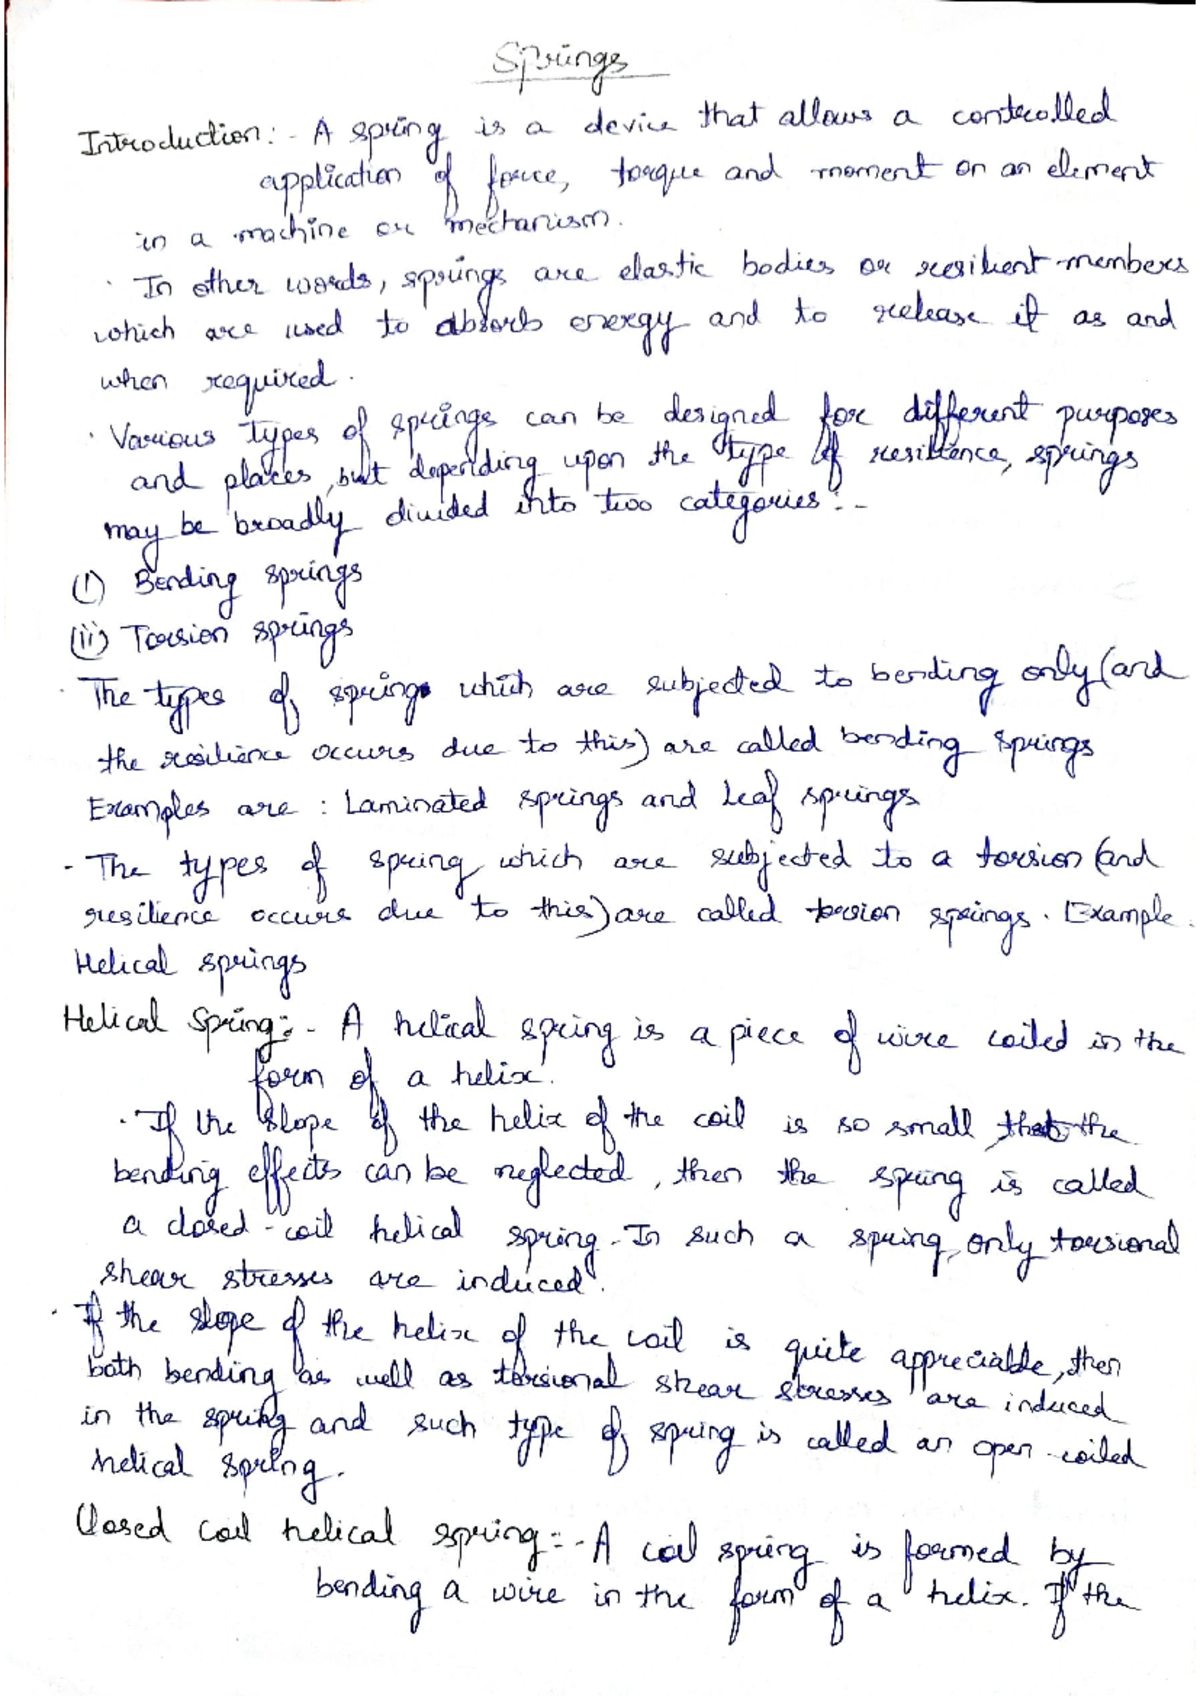 Springs
Introduction:- A spring is a device that allows a controlled
application of force, torque and moment on an element
in a machine or mechanism.
· In other words, springs are elastic bodies or resilient members
which are used to absorb energy and to release it as and
when required.
· Various types of springs can be designed for different purposes
and places, but depending upon the type of resiltence, springs
may be broadly divided into two categories:-
(i) Bending springs
(ii) Torsion springs
· The types of springs which are subjected to bending only (and
the resilience occurs due to this) are called bending springs
Examples are : Laminated springs and Leaf springs
- The types of spring which are subjected to a torsion (and
resilience occurs due to this) are called torsion springs. Example.
Helical springs
Helical Spring:- A helical spring is a piece of wire coiled in the
form of a helix.
· If the slope of the helix of the coil is so small that the
bending effects can be neglected, then the spring is called
a closed-coil helical spring. In such a spring, only torsional
shear stresses are induced.
· If the slope of the helix of the coil is quite appreciable, then
both bending as well as torsional shear stresses are induced
in the spring and such type of spring is called an open-coiled
helical spring.
Closed coil helical spring:- A coil spring is formed by
bending a wire in the form of a helix. If the